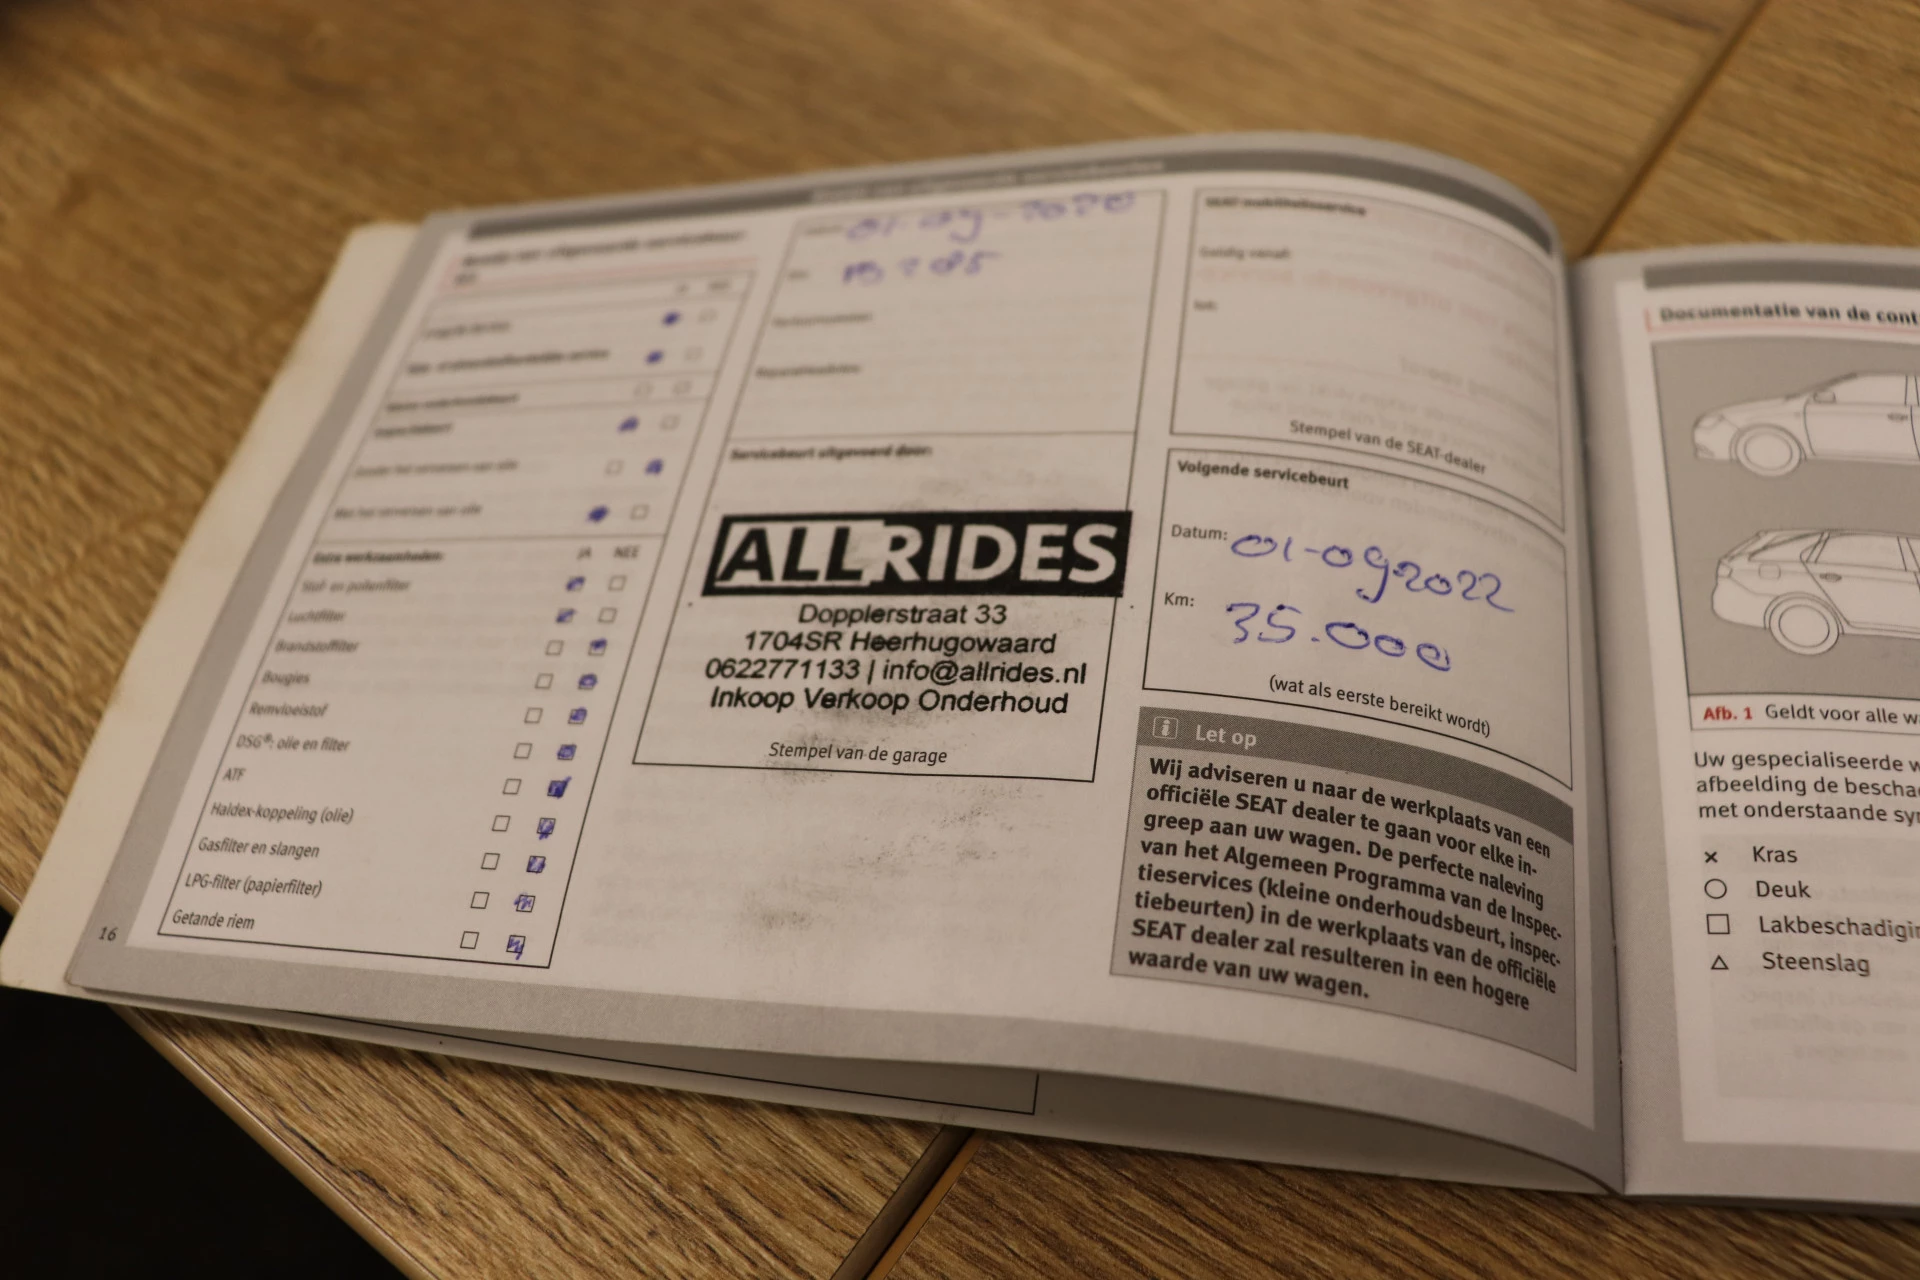 JA NEE
Extra werkzaamheden:
Stof- en pollenfilter
Luchtfilter
Brandstoffilter
Bougies
Remvloeistof
DSG®: olie en filter
ATF
Haldex-koppeling (olie)
Gasfilter en slangen
LPG-filter (papierfilter)
Getande riem
16
01-09-2020
Servicebeurt uitgevoerd door:
ALLRIDES
Dopplerstraat 33
1704SR Heerhugowaard
0622771133 | info@allrides.nl
Inkoop Verkoop Onderhoud
Stempel van de garage
SEAT-mobiliteitsservice
Geldig vanaf:
tot:
Stempel van de SEAT-dealer
Volgende servicebeurt
Datum: 01-09-2022
Km: 35.000
(wat als eerste bereikt wordt)
Let op
Wij adviseren u naar de werkplaats van een
officiële SEAT dealer te gaan voor elke in-
greep aan uw wagen. De perfecte naleving
van het Algemeen Programma van de Inspec-
tieservices (kleine onderhoudsbeurt, inspec-
tiebeurten) in de werkplaats van de officiële
SEAT dealer zal resulteren in een hogere
waarde van uw wagen.
Documentatie van de cont
Afb. 1 Geldt voor alle w
Uw gespecialiseerde w
afbeelding de bescha
met onderstaande sy
Kras
Deuk
Lakbeschadigin
Steenslag